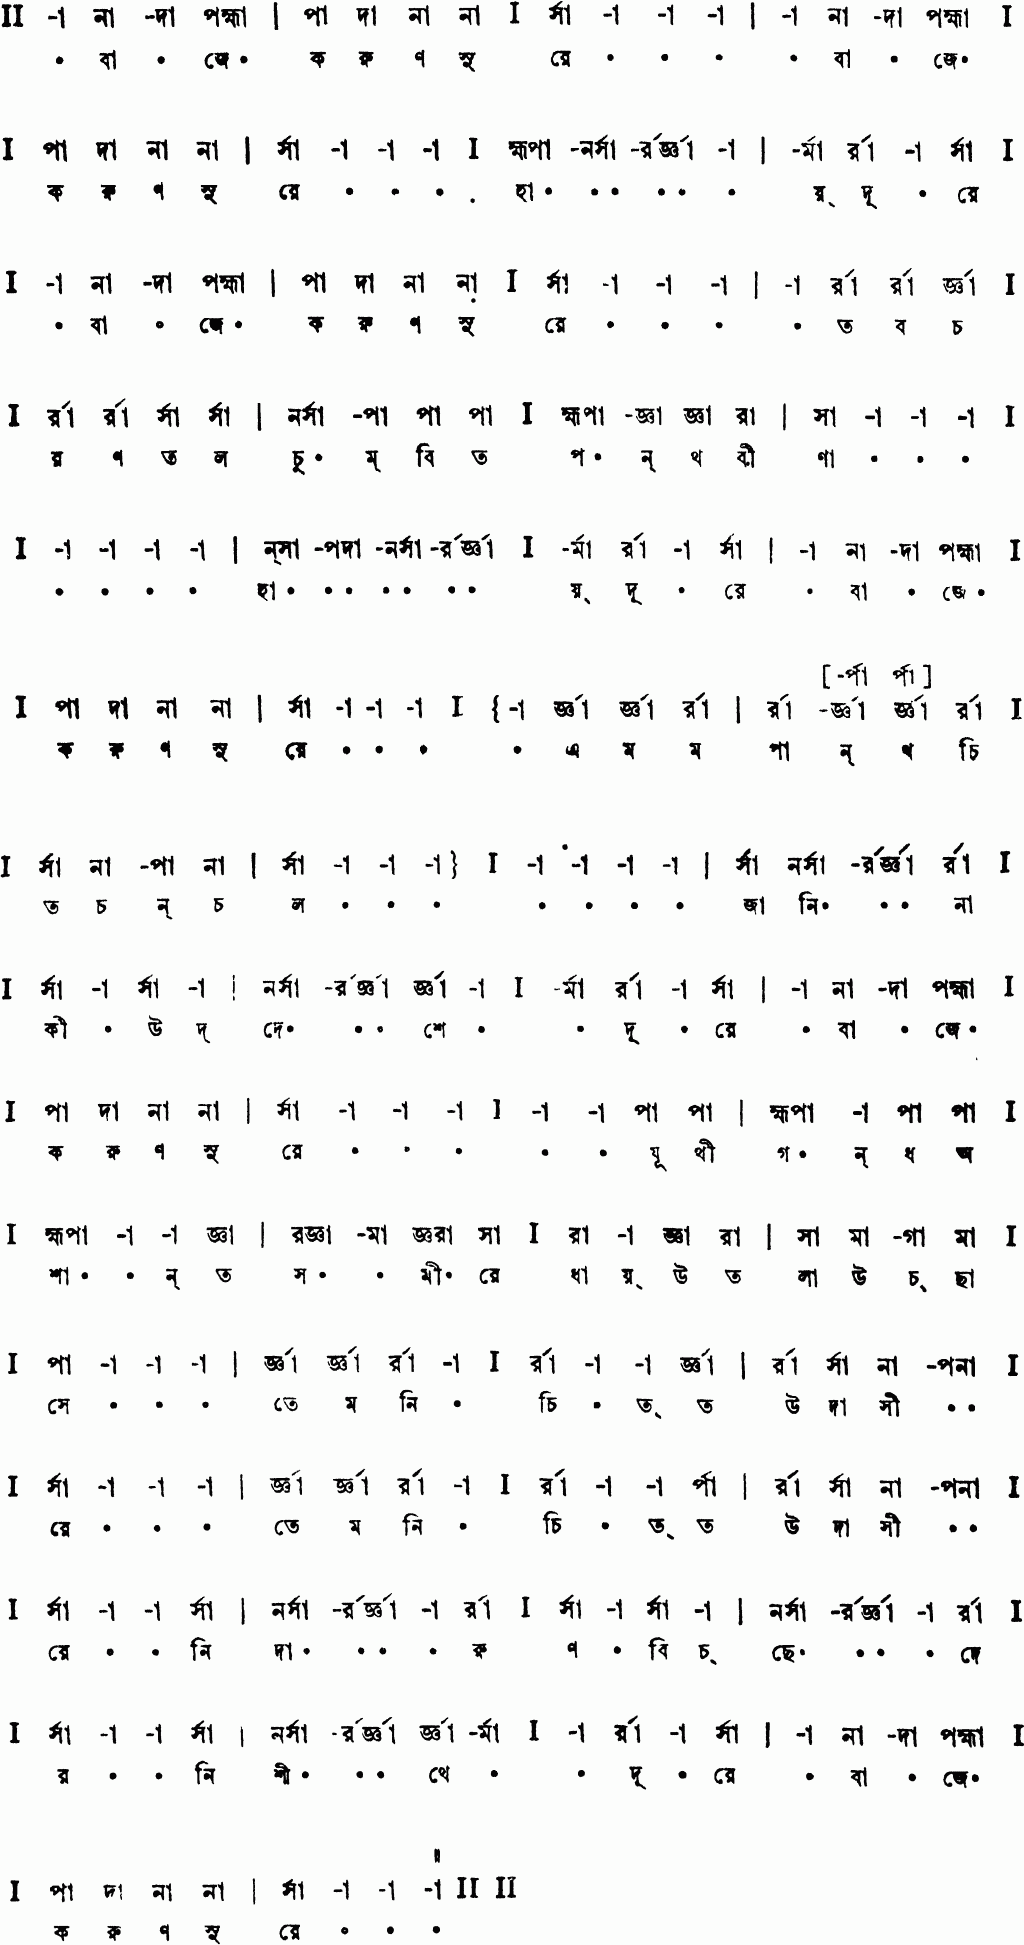 II -া না -দা পহ্মা | পা দা না না I র্সা -া -া -া | -া না -দা পহ্মা I
• বা • জে• ক রু ণ সু রে • • • • বা • জে•
I পা দা না না | র্সা -া -া -া I হ্মপা -নর্সা -র্রর্জ্ঞা -া | -র্মা র্রা -া র্সা I
ক রু ণ সু রে • • • হা• •• •• • য়্ দূ • রে
I -া না -দা পহ্মা | পা দা না না I র্সা -া -া -া | -া র্রা র্রা র্জ্ঞা I
• বা • জে• ক রু ণ সু রে • • • • ত ব চ
I র্রা র্রা র্সা র্সা | নর্সা -পা পা পা I হ্মপা -জ্ঞা জ্ঞা রা | সা -া -া -া I
র ণ ত ল চু• ম্ বি ত প• ন্ থ বী ণা • • •
I -া -া -া -া | ন্সা -পদা -নর্সা -র্রর্জ্ঞা I -র্মা র্রা -া র্সা | -া না -দা পহ্মা I
• • • • হা• •• •• •• য়্ দূ • রে • বা • জে•
[-র্পা র্পা]
I পা দা না না | র্সা -া -া -া I {-া র্জ্ঞা র্জ্ঞা র্রা | র্রা -র্জ্ঞা র্জ্ঞা র্রা I
ক রু ণ সু রে • • • • এ ম ম পা ন্ থ চি
I র্সা না -পা না | র্সা -া -া -া} I -া -া -া -া | র্সা নর্সা -র্রর্জ্ঞা র্রা I
ত চ ন্ চ ল • • • • • • • জা নি• •• না
I র্সা -া র্সা -া | নর্সা -র্রর্জ্ঞা র্জ্ঞা -া I -র্মা র্রা -া র্সা | -া না -দা পহ্মা I
কী • উ দ্ দে• •• শে • • দূ • রে • বা • জে•
I পা দা না না | র্সা -া -া -া I -া -া পা পা | হ্মপা -া পা পা I
ক রু ণ সু রে • • • • • যূ থী গ• ন্ ধ অ
I হ্মপা -া -া জ্ঞা | রজ্ঞা -মা জ্ঞরা সা I রা -া জ্ঞা রা | সা মা -গা মা I
শা• • ন্ ত স• • মী• রে ধা য়্ উ ত লা উ চ্ ছা
I পা -া -া -া | র্জ্ঞা র্জ্ঞা র্রা -া I র্রা -া -া র্জ্ঞা | র্রা র্সা না -পনা I
সে • • • তে ম নি • চি • ত্ ত উ দা সী ••
I র্সা -া -া -া | র্জ্ঞা র্জ্ঞা র্রা -া I র্রা -া -া র্পা | র্রা র্সা না -পনা I
রে • • • তে ম নি • চি • ত্ ত উ দা সী ••
I র্সা -া -া র্সা | নর্সা -র্রর্জ্ঞা -া র্রা I র্সা -া র্সা -া | নর্সা -র্রর্জ্ঞা -া র্রা I
রে • • নি দা• •• • রু ণ • বি চ্ ছে• •• • দে
I র্সা -া -া র্সা | নর্সা -র্রর্জ্ঞা র্জ্ঞা -র্মা I -া র্রা -া র্সা | -া না -দা পহ্মা I
র • • নি শী• •• থে • • দূ • রে • বা • জে•
I পা দা না না | র্সা -া -া -া II II
ক রু ণ সু রে • • •